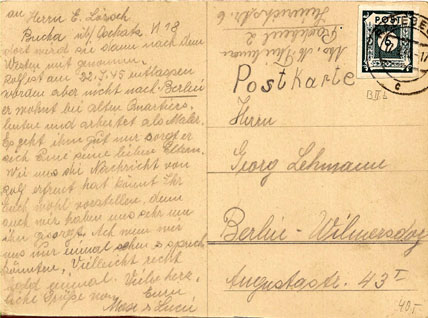 an Herrn E. Lörsch
Bucha üb/ Oschatz N 18
dort wird sie dann nach dem
Westen mit genommen.
Rolf ist am 22.7.45 entlassen
worden aber nicht nach Berlin
er wohnt bei alten Quartiers-
leuten und arbeitet als Maler.
Es geht ihm gut nur sorgt er
sich um seine lieben Eltern.
Wie uns die Nachricht von
Rolf erfreut hat könnt Ihr
Euch wohl vorstellen, denn
auch wir haben uns sehr um
ihn gesorgt. Ach wenn wir
uns nur einmal sehen & sprech
könnten, Vielleicht recht
bald einmal. Viele herz-
liche Grüße von Euren
Max & Luci
Postkarte
Herrn
Georg Lehmann
Berlin-Wilmersdorf
Augustastr. 43 I
40,-